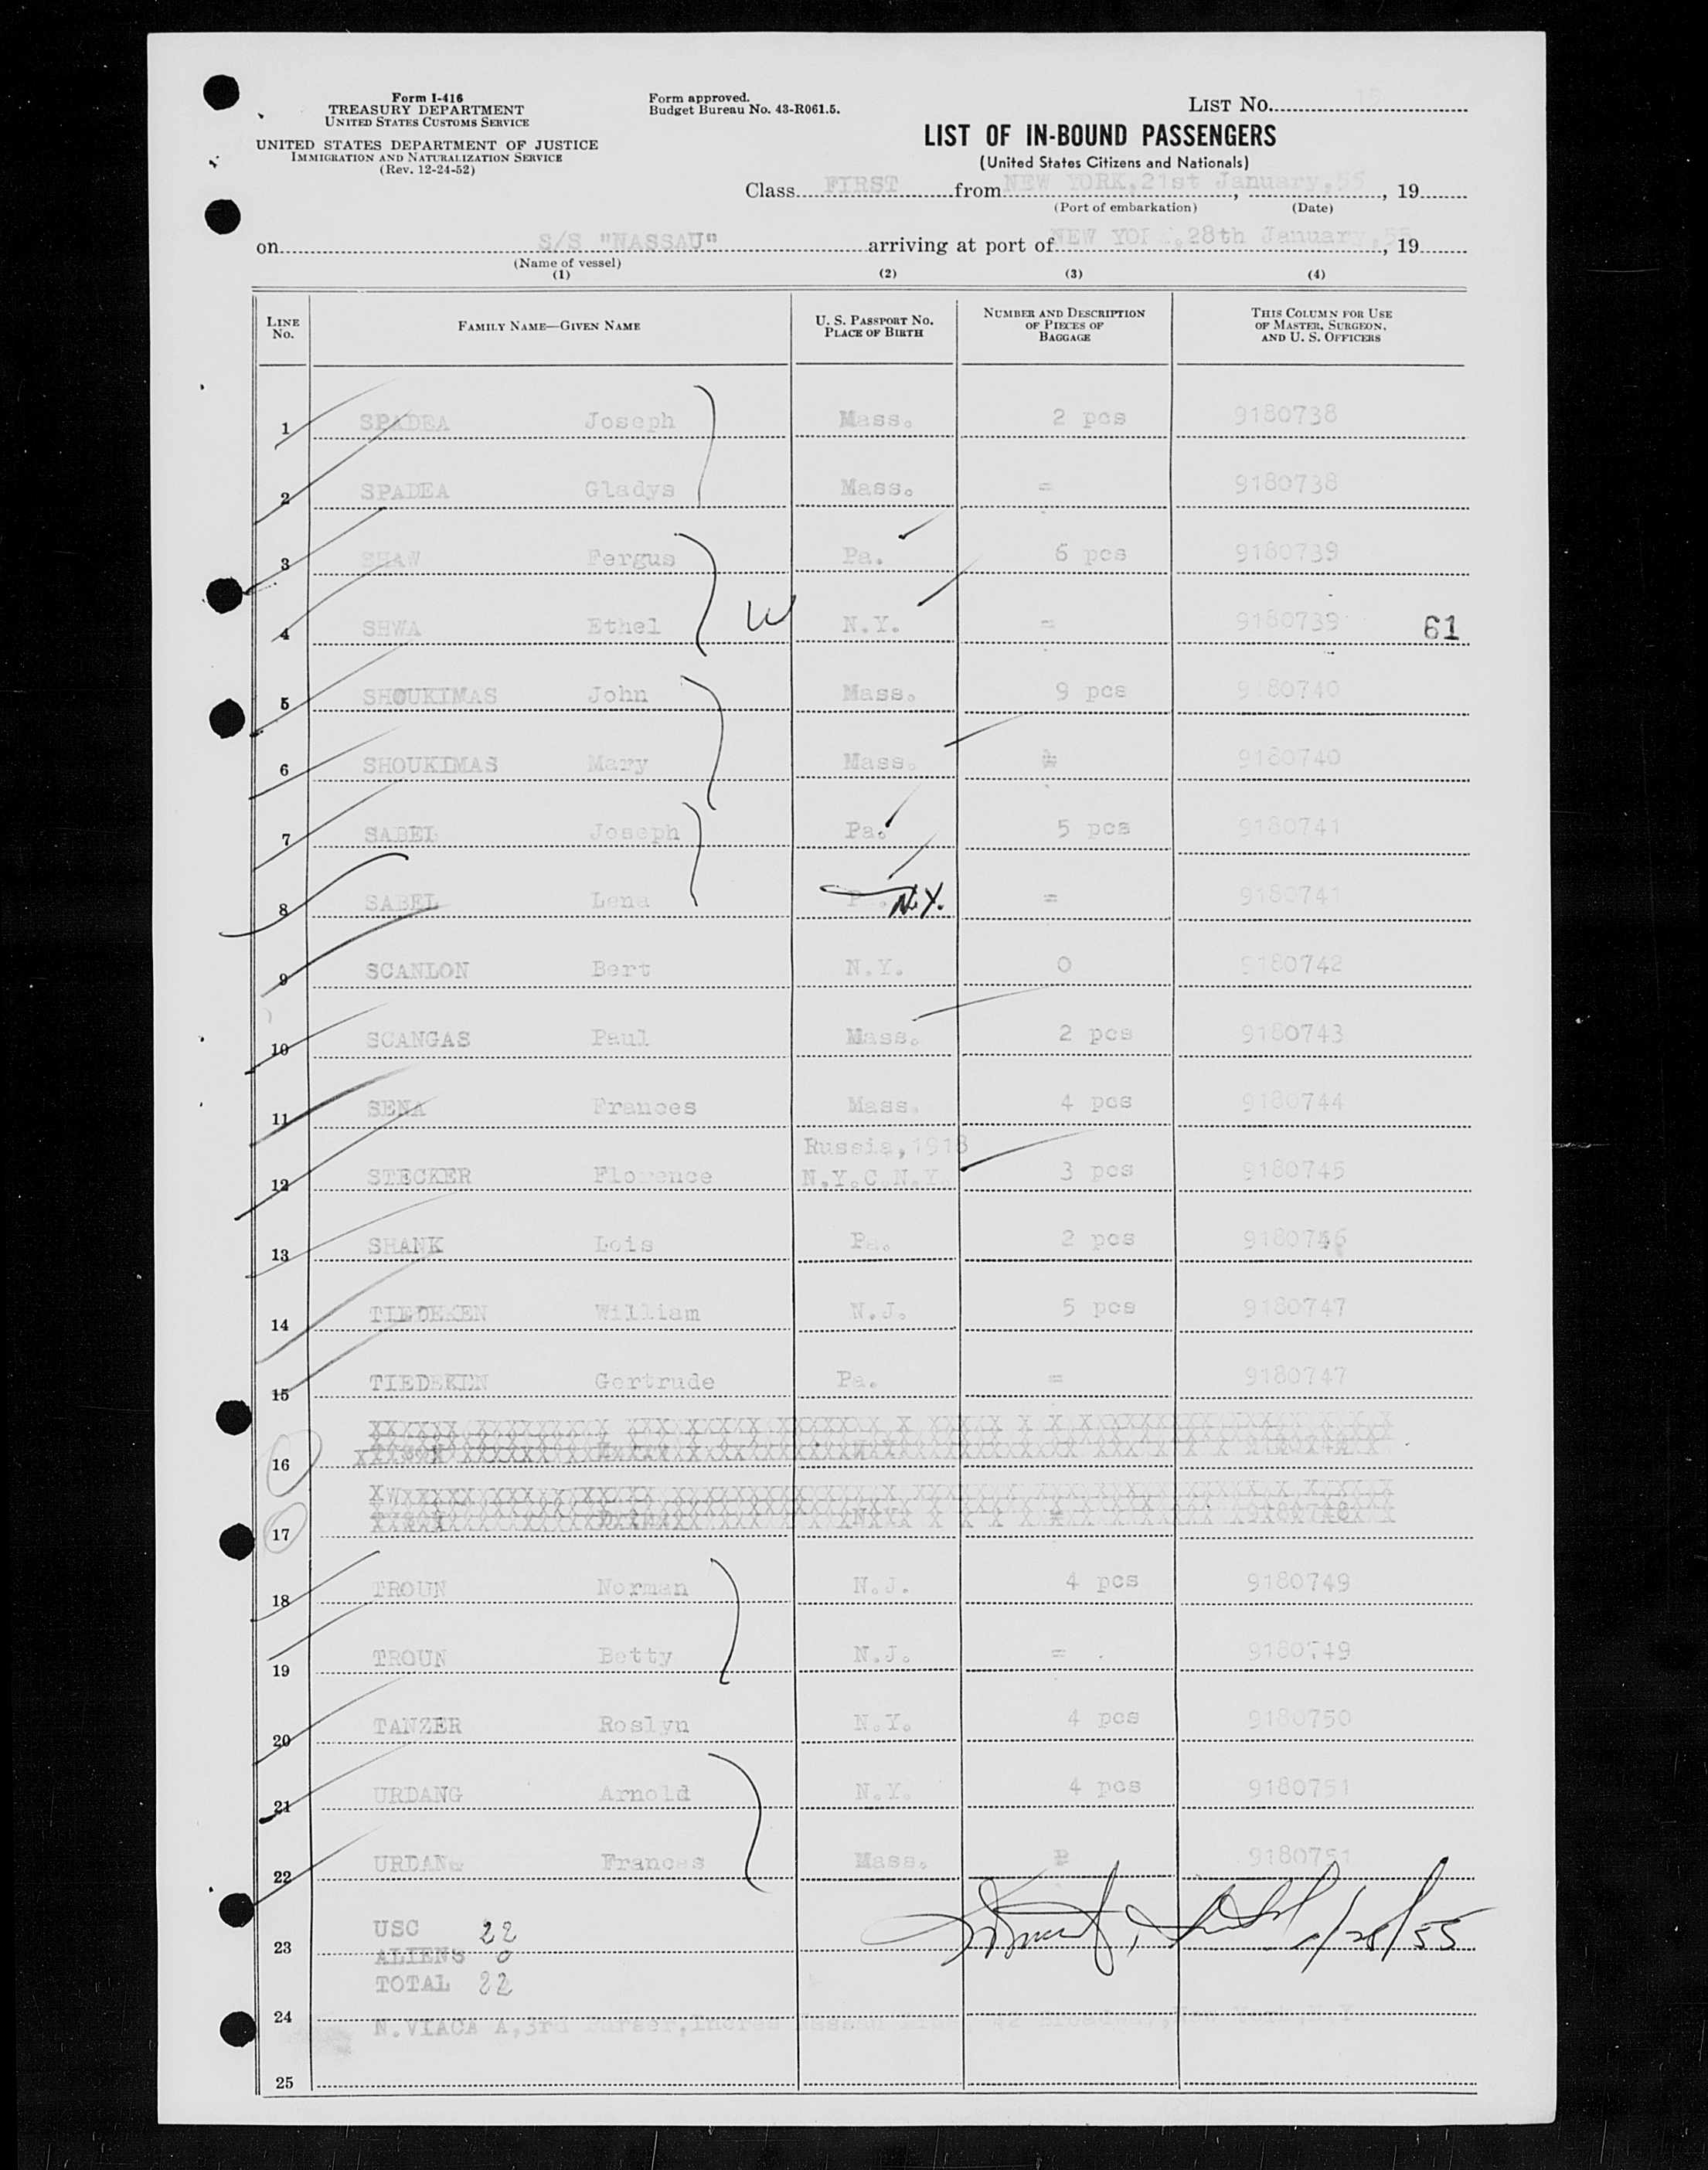 Form I-416
TREASURY DEPARTMENT
UNITED STATES CUSTOMS SERVICE
UNITED STATES DEPARTMENT OF JUSTICE
IMMIGRATION AND NATURALIZATION SERVICE
(Rev. 12-24-52)
Form approved.
Budget Bureau No. 43-R061.5.
LIST NO.
LIST OF IN-BOUND PASSENGERS
(United States Citizens and Nationals)
Class FIRST from NEW YORK, 21st January, 55, 19
(Port of embarkation) (Date)
on S/S "NASSAU" arriving at port of NEW YORK, 28th January, 55, 19
(Name of vessel)
(1) (2) (3) (4)
LINE NO. FAMILY NAME—GIVEN NAME U. S. PASSPORT NO. PLACE OF BIRTH NUMBER AND DESCRIPTION OF PIECES OF BAGGAGE THIS COLUMN FOR USE OF MASTER, SURGEON, AND U. S. OFFICERS
1 SPADEA Joseph Mass. 2 pcs 9180738
2 SPADEA Gladys Mass. = 9180738
3 SHAW Fergus Pa. 6 pcs 9180739
4 SHWA Ethel W N.Y. = 9180739 61
5 SHOUKIMAS John Mass. 9 pcs 9180740
6 SHOUKIMAS Mary Mass. 9180740
7 SABEL Joseph Pa. 5 pcs 9180741
8 SABEL Lena N.Y. = 9180741
9 SCANLON Bert N.Y. 0 9180742
10 SCANGAS Paul Mass. 2 pcs 9180743
11 SENA Frances Mass. 4 pcs 9180744
Russia, 1918
12 STECKER Florence N.Y.C.N.Y. 3 pcs 9180745
13 SHANK Lois Pa. 2 pcs 9180746
14 TIEDEKEN William N.J. 5 pcs 9180747
15 TIEDEKEN Gertrude Pa. = 9180747
16
17 9180748
18 TROUN Norman N.J. 4 pcs 9180749
19 TROUN Betty N.J. = 9180749
20 TANZER Roslyn N.Y. 4 pcs 9180750
21 URDANG Arnold N.Y. 4 pcs 9180751
22 URDANG Frances Mass. 9180751
USC 22
23 ALIENS 0 1/28/55
TOTAL 22
24 N. 3rd Purser, Incres Nassau 42 Broadway, New York, N.Y
25